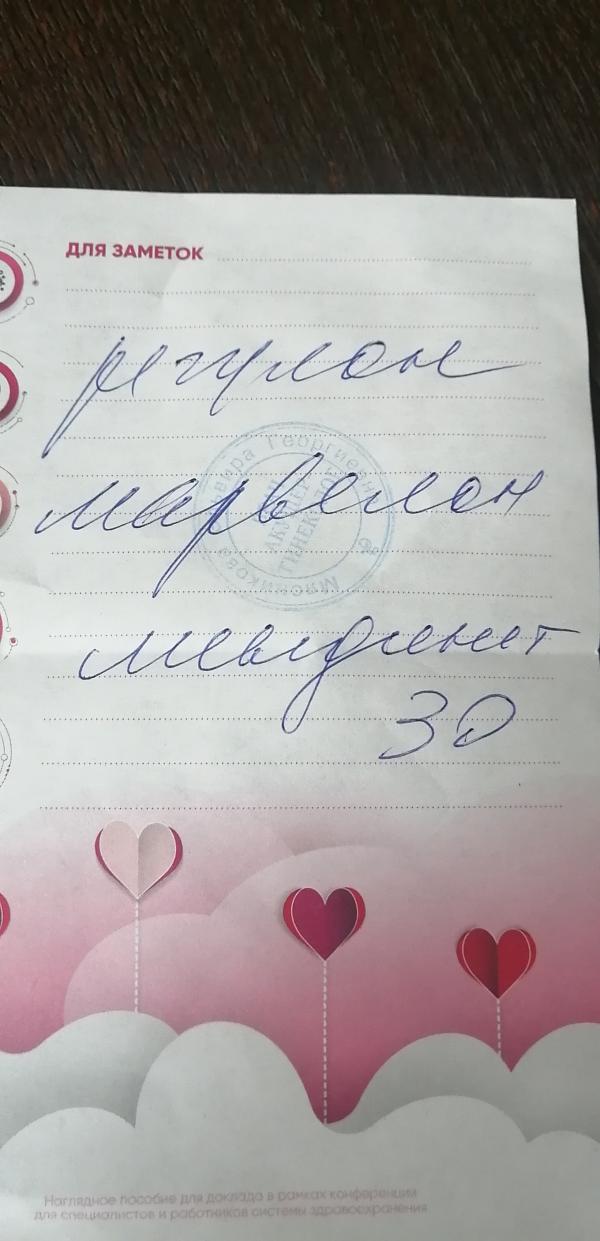 ДЛЯ ЗАМЕТОК
регулон
марвелон
мендиент
30
Мясникова Георгиевна
АКУШЕР
ГИНЕКОЛОГ
Наглядное пособие для доклада в рамках конференции
для специалистов и работников системы здравоохранения